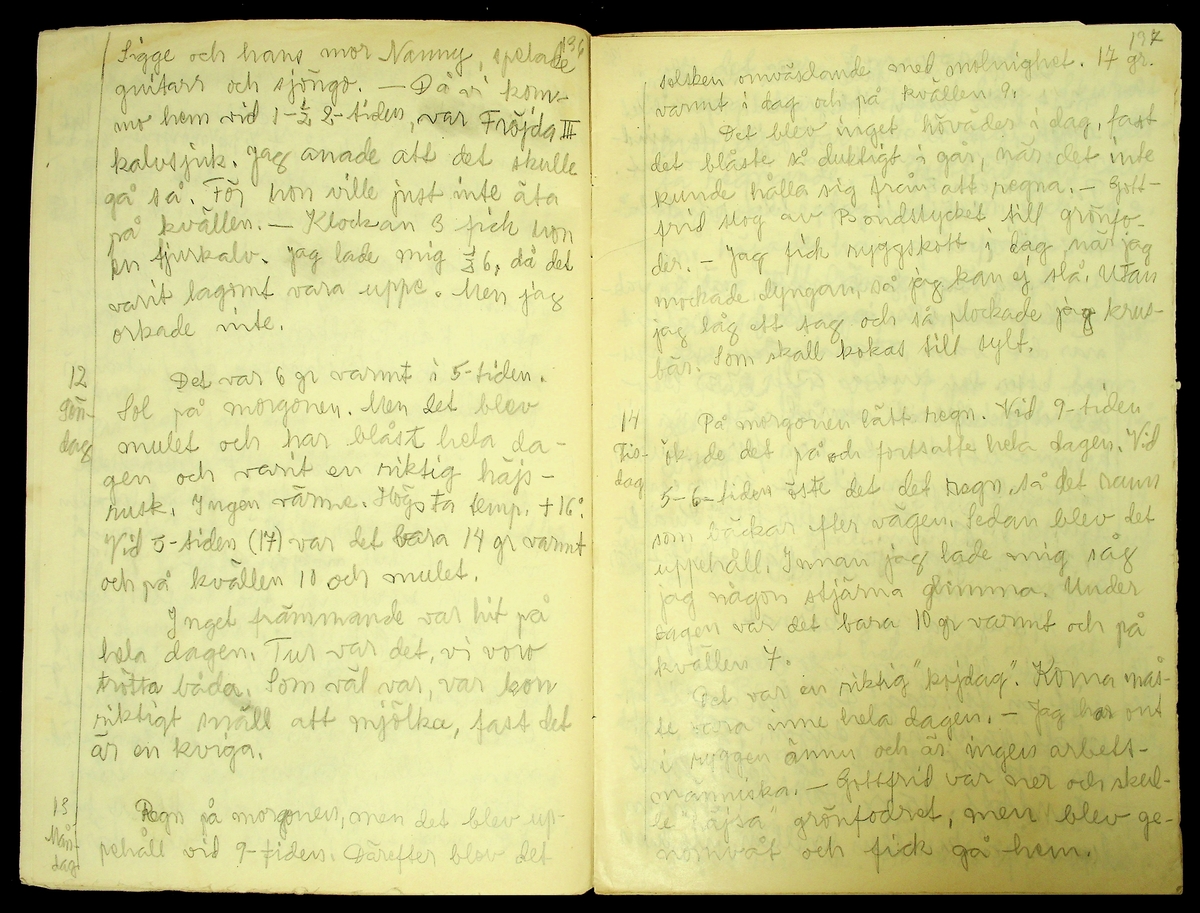 136
Sigge och hans mor Nanny, spelade
guitarr och sjöngo. — Då vi kom-
mo hem vid 1-½ 2-tiden, var Fröjda III
kalvsjuk. Jag anade att det skulle
gå så. För hon ville just inte äta
på kvällen. — Klockan 3 fick hon
en tjurkalv. Jag lade mig 6, då det
varit lagomt vara uppe. Men jag
orkade inte.
12 Det var 6 gr varmt i 5-tiden.
Sön- Sol på morgonen. Men det blev
dag mulet och har blåst hela da-
gen och varit en riktig häjs-
rusk. Ingen värme. Högsta temp. +16°.
Vid 5-tiden (17) var det bara 14 gr varmt
och på kvällen 10 och mulet.
Inget främmande var hit på
hela dagen. Tur var det, vi voro
trötta båda. Som väl var, var hon
riktigt snäll att mjölka, fast det
är en kviga.
13 Regn på morgonen, men det blev up-
Mån- pehåll vid 9-tiden. Därefter blev det
dag
137
solsken omväxlande med molnighet. 17 gr.
varmt i dag och på kvällen 9.
Det blev inget höväder i dag, fast
det blåste så duktigt i går, när det inte
kunde hålla sig från att regna. — Gott-
frid slog av Bondstycket till grönfo-
der. — Jag fick ryggskott i dag när jag
mockade dyngan, så jag kan ej slå. Utan
jag låg ett tag och så plockade jag krus-
bär. Som skall kokas till sylt.
14 På morgonen lätt regn. Vid 9-tiden
Tis- ök de det på och fortsatte hela dagen. Vid
dag 5-6-tiden öste det det regn, så det rann
som bäckar efter vägen. Sedan blev det
uppehåll. Innan jag lade mig såg
jag någon stjärna glimma. Under
dagen var det bara 10 gr varmt och på
kvällen 7.
Det var en riktig "kojdag". Korna mås-
te vara inne hela dagen. — Jag har ont
i ryggen ännu och är ingen arbets-
människa. — Gottfrid var ner och skul-
le grönfodret, men blev ge-
nomvåt och fick gå hem.